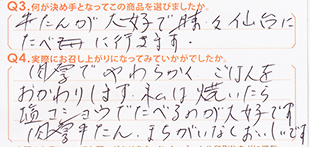 Q3.何が決め手となってこの商品を選びましたか。
牛たんが大好で時々仙台に
たべに行きます.
Q4.実際にお召し上がりになってみていかがでしたか。
肉厚でやわらかく、ごはんを
おかわりします.私は焼いたら
塩コショウでたべるのが大好です
肉厚牛たん、まちがいなくおいしいです